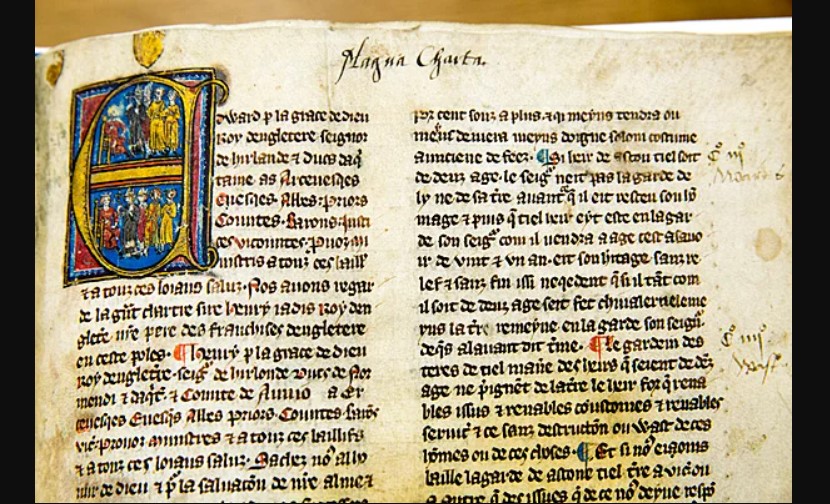 Magna Charta.
Edward p la grace de dieu
Roy dengletere seignor
de hirlande ⁊ Ducs daq̄
taine as Arcevesqes
Evesqes Abbes Priors
Countes Barons Justi
ces vicontes
ministres a touz ces baill
⁊ a touz ces loiaus saluz Nos avons regar
de la gn̄t chartre sire henry iadis roy den
glet̄e nr̄e pere des franchises dengletere
en ceste poles ¶ Henry p la grace de dieu
Roy denglet̄re seig̃ de hirlonde Ducs de Nor
mendi ⁊ daq̄t ⁊ Comte de a Er
cevesqes Evesqes Abbes priors Countes barōs
ministres ⁊ a touz ces baillifs
⁊ a touz ces loiaus saluz Sachez
de dieu ⁊ p̲ la salvaciōn de nr̄e alme ⁊
cent souz a plus ⁊ qi meyns tendra ou
meins devera meyns doigne solom costume
aunciene de feez ¶ Si heir de ascou tiel soit
de deuz age le seig̃ neit pas la garde de
ly ne de sa t̄re avant q̄ il eit resceu son
mage ⁊ puis q̄ tiel heir eyt este en la gar
de son seig̃ com il vendra a age cest asavo
ir de vint ⁊ un an eit son h̄itage sanz re
lef ⁊ sanz fin issi neqedent q̄ si il tāt com
il soit de deuz age seit fet chivaler
la t̄re remeyne en la garde son seig̃
deq̄s al avant dit t̄me ¶ Le gardein des
teres de tiel man̄e des heirs q̄ seient de dēz
age ne p̄ignēt de la t̄re le heir forq̄ rena
bles issus ⁊ renables coustomes ⁊ renables
servic̄ ⁊ ce sanz destructōn ou wast de ces
hōmes ou de ces choses ¶ Et si no᷒
baille la garde de ascone tiel t̄re a vicōn ou
a autre q̄ des issues q̄ de ce no᷒ deyve resp̄
C iij
C iiij
Wast